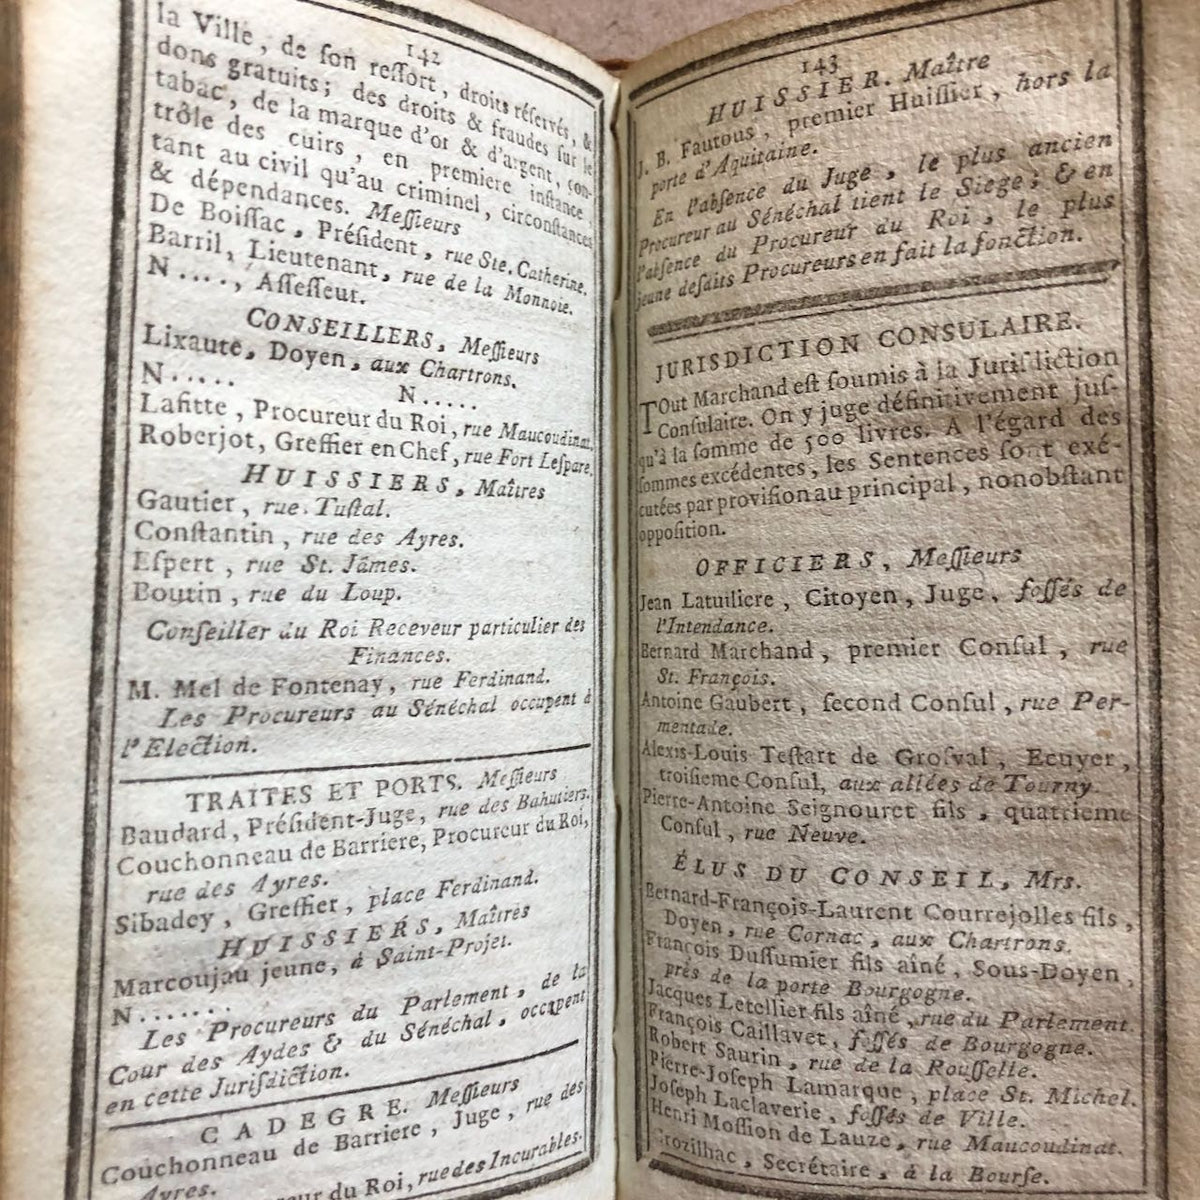 142
la Ville, de ſon reſſort, droits réſervés, &
dons gratuits; des droits & fraudes ſur le
tabac, de la marque d'or & d'argent, con-
trôle des cuirs, en premiere inſtance,
tant au civil qu'au criminel, circonſtances
& dépendances. Meſſieurs
De Boiſſac, Préſident, rue Ste. Catherine.
Barril, Lieutenant, rue de la Monnoie.
N....., Aſſeſſeur.
CONSEILLERS, Meſſieurs
Lixaute, Doyen, aux Chartrons.
N..... N.....
Lafitte, Procureur du Roi, rue Maucoudinat.
Roberjot, Greffier en Chef, rue Fort Leſpare.
HUISSIERS, Maîtres
Gautier, rue Tuſtal.
Conſtantin, rue des Ayres.
Eſpert, rue St. Jâmes.
Boutin, rue du Loup.
Conſeiller du Roi Receveur particulier des
Finances.
M. Mel de Fontenay, rue Ferdinand.
Les Procureurs au Sénéchal occupent à
l'Election.
TRAITES ET PORTS. Meſſieurs
Baudard, Préſident-Juge, rue des Bahutiers.
Couchonneau de Barriere, Procureur du Roi,
rue des Ayres.
Sibadey, Greffier, place Ferdinand.
HUISSIERS, Maîtres
Marcoujau jeune, à Saint-Projet.
N.......
Les Procureurs du Parlement, de la
Cour des Aydes & du Sénéchal, occupent
en cette Juriſdiction.
CADEGRE. Meſſieurs
Couchonneau de Barriere, Juge, rue des
Ayres.
du Roi, rue des Incurables.
143
HUISSIER. Maître
J. B. Fautous, premier Huiſſier, hors la
porte d'Aquitaine.
En l'abſence du Juge, le plus ancien
Procureur au Sénéchal tient le Siege; & en
l'abſence du Procureur du Roi, le plus
jeune deſdits Procureurs en fait la fonction.
JURISDICTION CONSULAIRE.
TOut Marchand eſt ſoumis à la Juriſdiction
Conſulaire. On y juge définitivement juſ-
qu'à la ſomme de 500 livres. A l'égard des
ſommes excédentes, les Sentences ſont exé-
cutées par proviſion au principal, nonobſtant
oppoſition.
OFFICIERS, Meſſieurs
Jean Latuiliere, Citoyen, Juge, foſſés de
l'Intendance.
Bernard Marchand, premier Conſul, rue
St. François.
Antoine Gaubert, ſecond Conſul, rue Per-
mentade.
Alexis-Louis Teſtart de Groſval, Ecuyer,
troiſieme Conſul, aux allées de Tourny.
Pierre-Antoine Seignouret fils, quatrieme
Conſul, rue Neuve.
ÉLUS DU CONSEIL, Mrs.
Bernard-François-Laurent Courrejolles fils,
Doyen, rue Cornac, aux Chartrons.
François Duſſumier fils aîné, Sous-Doyen,
près de la porte Bourgogne.
Jacques Letellier fils aîné, rue du Parlement.
François Caillavet, foſſés de Bourgogne.
Robert Saurin, rue de la Rouſſelle.
Pierre-Joſeph Lamarque, place St. Michel.
Joſeph Laclaverie, foſſés de Ville.
Henri Moſſion de Lauze, rue Maucoudinat.
Grozilhac, Secrétaire, à la Bourſe.